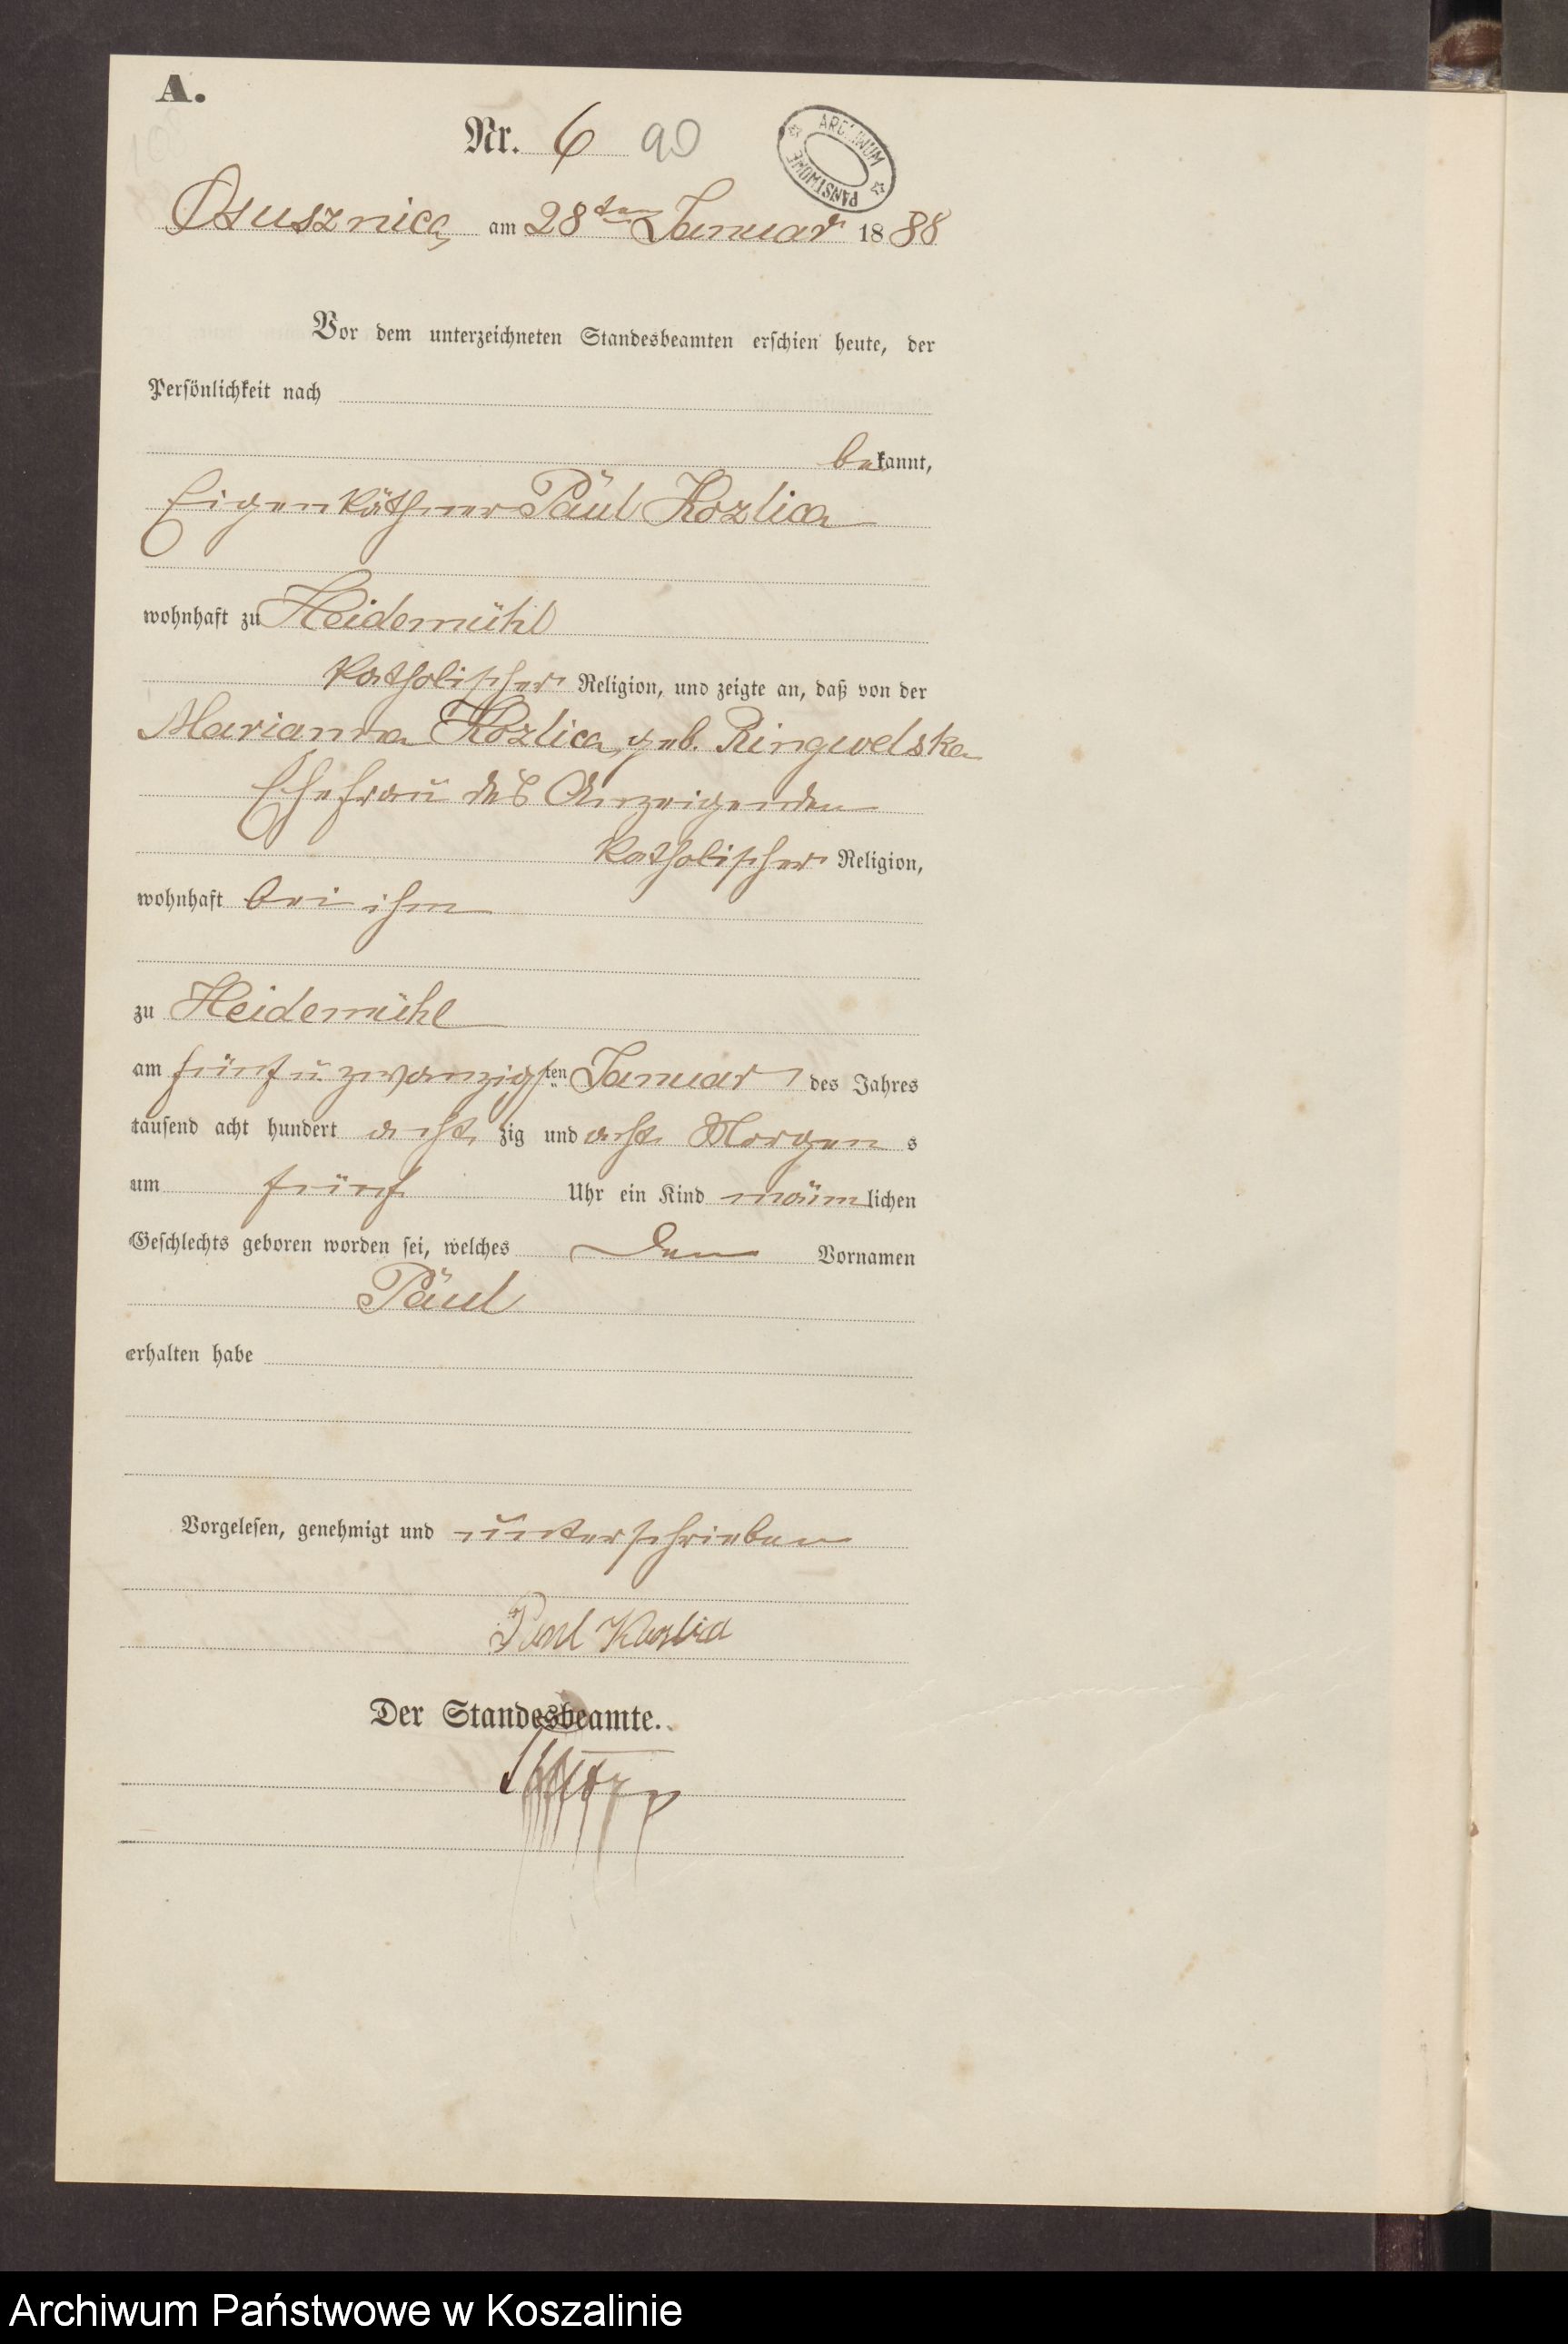 A.
Nr. 6 90
ARCHIWUM PAŃSTWOWE
Osusznica, am 28ten Januar 1888
Vor dem unterzeichneten Standesbeamten erschien heute, der
Persönlichkeit nach
bekannt,
Eigenkäthner Paul Kozlica
wohnhaft zu Heidemühl
katholischer Religion, und zeigte an, daß von der
Marianna Kozlica, geb. Ringwelska
Ehefrau des Anzeigenden
katholischer Religion,
wohnhaft bei ihm
zu Heidemühl
am fünf u zwanzigsten Januar des Jahres
tausend acht hundert acht zig und acht Morgens
um fünf Uhr ein Kind männlichen
Geschlechts geboren worden sei, welches den Vornamen
Paul
erhalten habe
Vorgelesen, genehmigt und unterschrieben
Paul Kozlica
Der Standesbeamte.
Archiwum Państwowe w Koszalinie